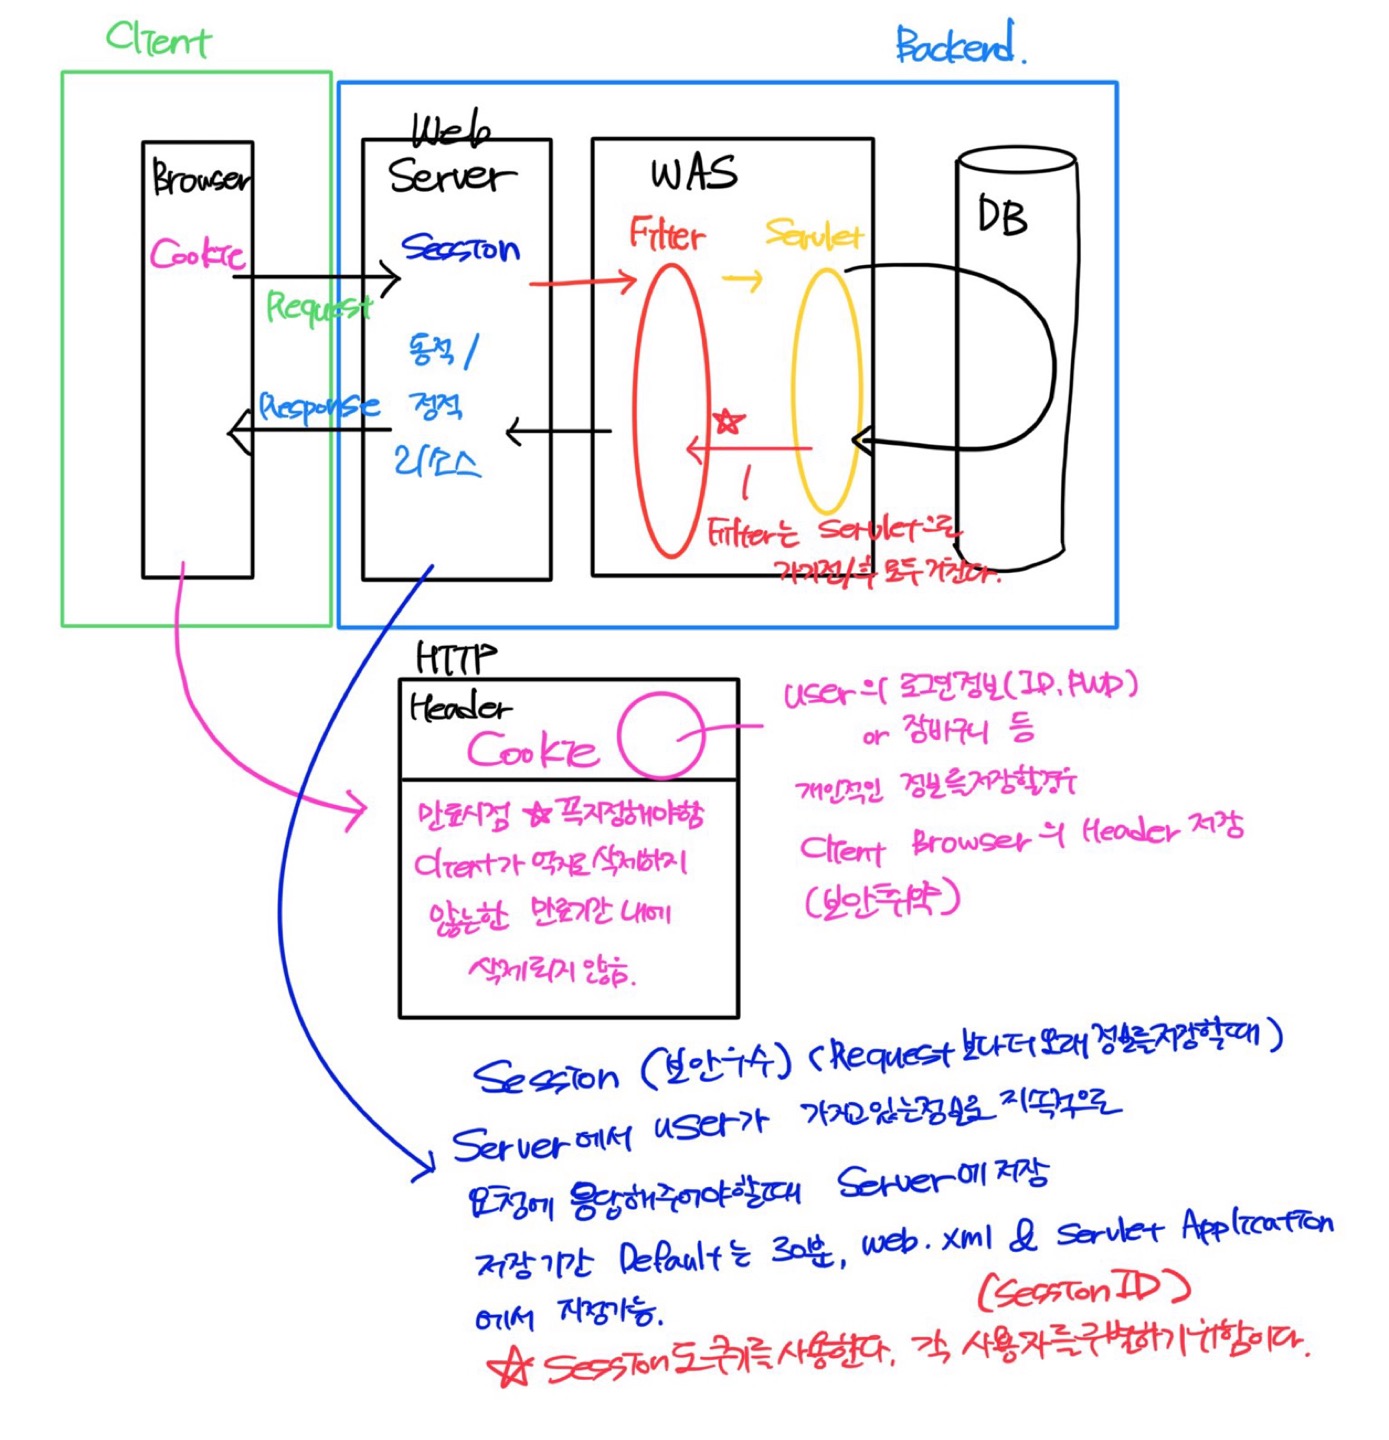 Client
Backend.
Browser
Cookie
Request
Response
Web
Server
Session
동적/
정적
리소스
WAS
Filter
Servlet
DB
Filter는 Servlet으로
가기전/후 모두 거친다.
HTTP
Header
Cookie
만료시점 ☆ 꼭지정해야함
Client가 억지로 삭제하지
않는한 만료기간 내에
삭제되지 않음.
user의 로그인정보(ID, PWD)
or 장바구니 등
개인적인 정보를저장할경우
Client Browser의 Header 저장
(보안취약)
Session (보안우수) (Request 보다 더 오래 정보를저장할때)
Server에서 user가 가지고있는정보를 지속적으로
요청에 응답해주어야할때 Server에 저장
저장기간 Default는 30분, web.xml & Servlet Application
에서 지정가능.
(Session ID)
☆ Session도 쿠키를 사용한다. 각 사용자를구별하기위함이다.